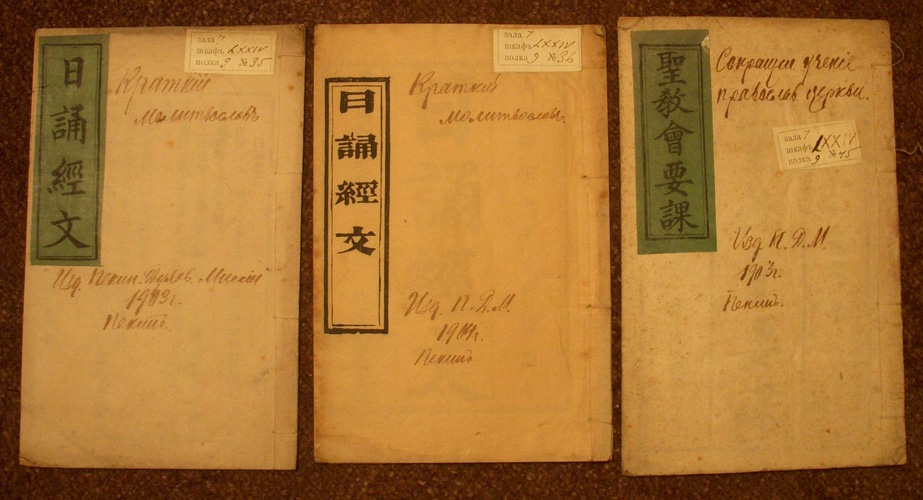 日誦經文
зала 7
шкафъ LXXIV
полка 9 № 35
Краткій
молитвословъ
Изд. Пекин. Духов. Миссіи
19 3г.
Пекинъ.
日誦經文
зала 7
шкафъ LXXIV
полка 9 № 36
Краткій
молитвословъ.
Изд. П. Д. М
19 г.
Пекинъ
聖教會要課
Сокращен ученіе
православ церкви.
зала 7
шкафъ LXXIV
полка 9 № 45
Изд П. Д. М.
19 3г.
Пекинъ.